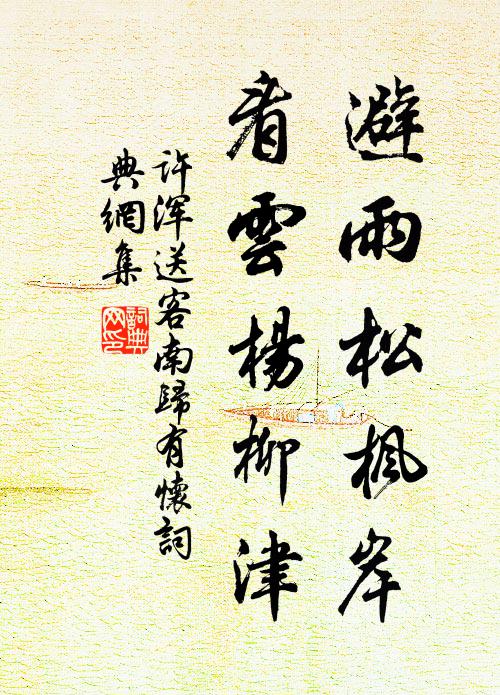 避雨松楓岸
看雲楊柳津
許渾送客南歸有懷詞
典網集
詞典
网印